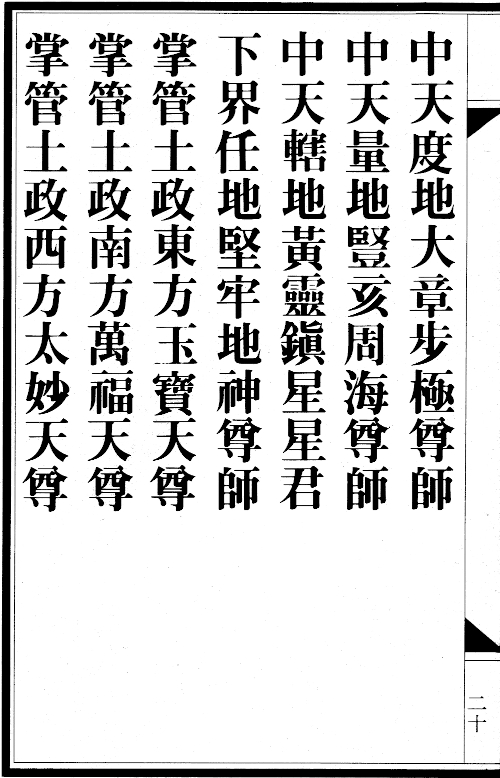 中天度地大章步極尊師
中天量地豎亥周海尊師
中天轄地黃靈鎭星星君
下界任地堅牢地神尊師
掌管土政東方玉寶天尊
掌管土政南方萬福天尊
掌管土政西方太妙天尊
二十